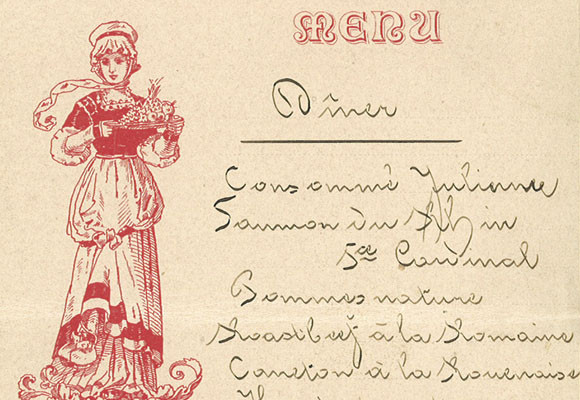 MENU
Dîner
Consommé Julienne
Saumon du Rhin
sce Cardinal
Pommes nature
Roastbeef à la Romaine
Caneton à la Rouenaise